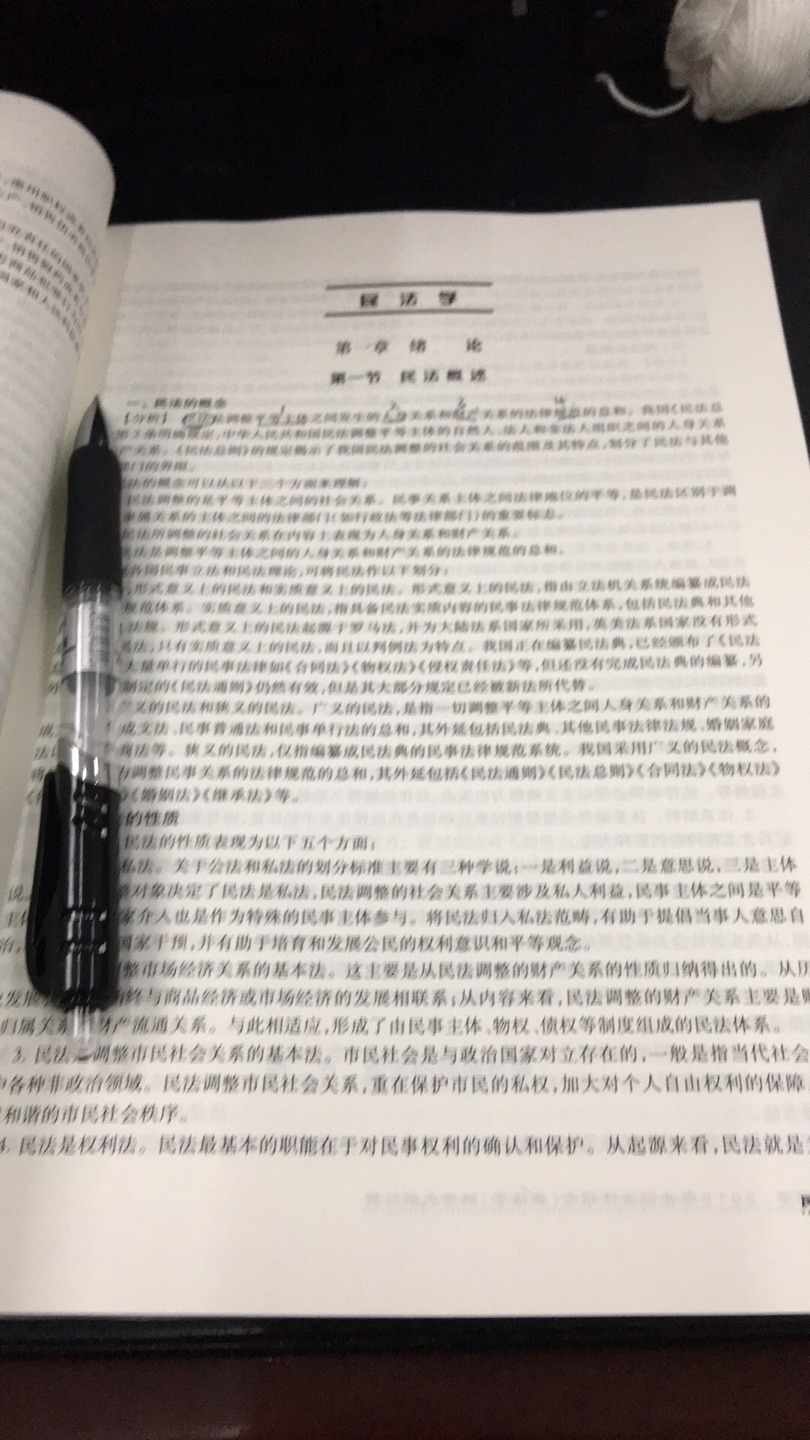 民法学
第一章 绪 论
第一节 民法概述
一、民法的概念
【分析】 调整平等主体之间发生的人身关系和财产关系的法律规范的总和。我国《民法总
第2条明确规定,中华人民共和国民法调整平等主体的自然人、法人和非法人组织之间的人身关系
产关系。《民法总则》的规定揭示了我国民法调整的社会关系的范围及其特点,划分了民法与其他
部门的界限。
法的概念可以从以下三个方面来理解:
民法调整的是平等主体之间的社会关系。民事关系主体之间法律地位的平等,是民法区别于调
隶属关系的主体之间的法律部门(如行政法等法律部门)的重要标志。
民法所调整的社会关系在内容上表现为人身关系和财产关系。
民法是调整平等主体之间的人身关系和财产关系的法律规范的总和。
各国民事立法和民法理论,可将民法作以下划分:
形式意义上的民法和实质意义上的民法。形式意义上的民法,指由立法机关系统编纂成民法
规范体系。实质意义上的民法,指具备民法实质内容的民事法律规范体系,包括民法典和其他
法规。形式意义上的民法起源于罗马法,并为大陆法系国家所采用,英美法系国家没有形式
民法,只有实质意义上的民法,而且以判例法为特点。我国正在编纂民法典,已经颁布了《民法
大量单行的民事法律如《合同法》《物权法》《侵权责任法》等,但还没有完成民法典的编纂,另
制定的《民法通则》仍然有效,但是其大部分规定已经被新法所代替。
义的民法和狭义的民法。广义的民法,是指一切调整平等主体之间人身关系和财产关系的
成 成文法、民事普通法和民事单行法的总和,其外延包括民法典、其他民事法律法规、婚姻家庭
法 商法等。狭义的民法,仅指编纂成民法典的民事法律规范系统。我国采用广义的民法概念,
调整民事关系的法律规范的总和,其外延包括《民法通则》《民法总则》《合同法》《物权法》
《婚姻法》《继承法》等。
的性质
民法的性质表现为以下五个方面:
私法。关于公法和私法的划分标准主要有三种学说:一是利益说,二是意思说,三是主体
说。 整对象决定了民法是私法,民法调整的社会关系主要涉及私人利益,民事主体之间是平等
主体 家介入也是作为特殊的民事主体参与。将民法归入私法范畴,有助于提倡当事人意思自
治, 国家干预,并有助于培育和发展公民的权利意识和平等观念。
整市场经济关系的基本法。这主要是从民法调整的财产关系的性质归纳得出的。从历
发展 终与商品经济或市场经济的发展相联系;从内容来看,民法调整的财产关系主要是财
归属关系 财产流通关系。与此相适应,形成了由民事主体、物权、债权等制度组成的民法体系。
3. 民法是调整市民社会关系的基本法。市民社会是与政治国家对立存在的,一般是指当代社会
中各种非政治领域。民法调整市民社会关系,重在保护市民的私权,加大对个人自由权利的保障
和谐的市民社会秩序。
4. 民法是权利法。民法最基本的职能在于对民事权利的确认和保护。从起源来看,民法就是